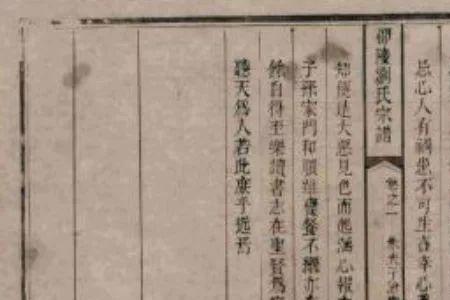 忌心人有禍患不可生喜幸心
邵陵劉氏宗譜 卷之一
知便是大惡見色而起淫心報
子孫家門和順雖饔餐不繼亦
餘自得至樂讀書志在聖賢為
聽天為人若此庶乎近焉